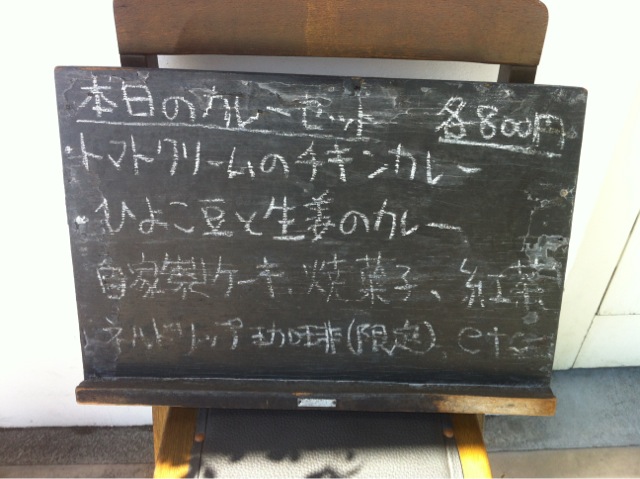 本日のカレーセット 各800円
・トマトクリームのチキンカレー
・ひよこ豆と生姜のカレー
自家製ケーキ、焼菓子、紅茶
ネルドリップ珈琲(限定)、etc